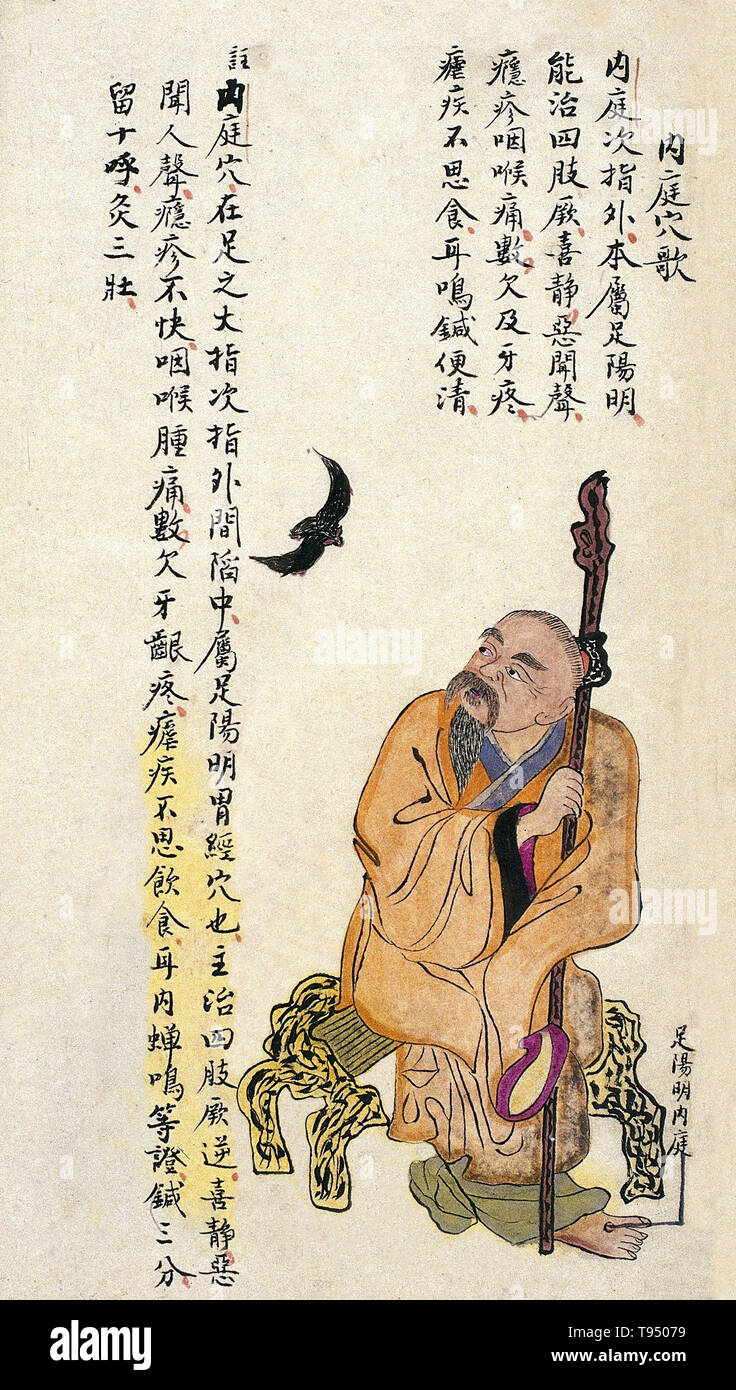 内庭穴歌
内庭次指外本屬足陽明
能治四肢厥喜静惡聞聲
癮疹咽喉痛數欠及牙疼
瘧疾不思食耳鳴鍼便清
註
内庭穴在足之大指次指外間陷中屬足陽明胃經穴也主治四肢厥逆喜静惡
聞人聲癮疹不快咽喉腫痛數欠牙齦疼瘧疾不思飲食耳内蝉鳴等證鍼三分
留十呼灸三壯
足陽明内庭
alamy
alamy
alamy
alamy
alamy
alamy
Image ID: T95079
www.alamy.com